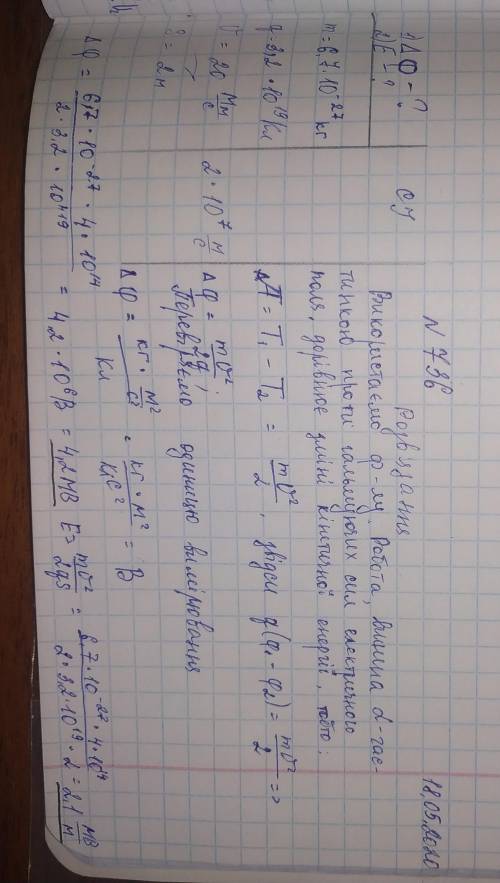 18.05.2020
N 736
Розв'язання
1) Δφ - ?
2) E - ?
m = 6,7 · 10⁻²⁷ кг
q = 3,2 · 10¹⁹ Кл
υ = 20 Мм/с
S = 2 м
СИ
2 · 10⁷ м/с
Використаємо ф-лу. Робота, виконана α-час-
тинкою проти гальмуючих сил електричного
поля, дорівнює зміні кінетичної енергії, тобто:
A = T₁ - T₂ = mυ²/2, звідси q(φ₁ - φ₂) = mυ²/2 =>
Δφ = mυ²/2q;
Перевіряємо одиницю вимірювання
Δφ = кг · м²/с² / Кл = кг · м²/Кл с² = В
Δφ = 6,7 · 10⁻²⁷ · 4 · 10¹⁴ / 2 · 3,2 · 10⁺¹⁹ = 4,2 · 10⁶ В = 4,2 МВ E = mυ²/2qS = 6,7 · 10⁻²⁷ · 4 · 10¹⁴ / 2 · 3,2 · 10¹⁹ · 2 = 2,1 МВ/м